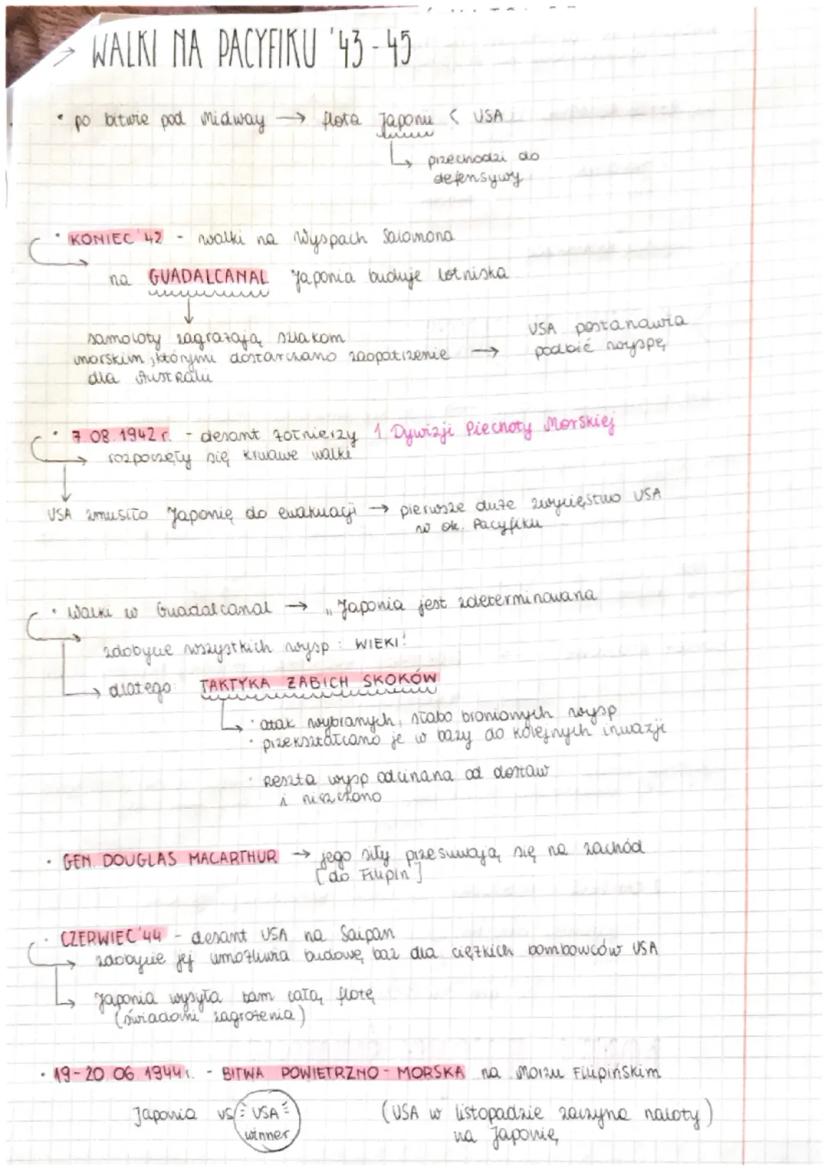 → WALKI NA PACYFIKU '43-45
• po bitwie pod Midway → flota Japonii < USA
↳ przechodzi do
defensywy
• KONIEC '42 - walki na Wyspach Salomona
na GUADALCANAL Japonia buduje lotniska
samoloty zagrażają szlakom
morskim, którymi dostarczano zaopatrzenie →
dla Australii
USA postanawia
podbić wyspę
• 7 08 1942 r. - desant żołnierzy 1 Dywizji Piechoty Morskiej
rozpoczęły się krwawe walki
USA zmusiło Japonię do ewakuacji → pierwsze duże zwycięstwo USA
w ok. Pacyfiku
• Walki w Guadalcanal → „Japonia jest zdeterminowana
zdobycie wszystkich wysp: WIEKI!
→ dlatego TAKTYKA ŻABICH SKOKÓW
↳ • atak wybranych, słabo bronionych wysp
• przekształcano je w bazy do kolejnych inwazji
• Reszta wysp odcinana od dostaw
i niszczono
• GEN. DOUGLAS MACARTHUR → jego siły przesuwają się na zachód
[do Filipin]
• CZERWIEC '44 - desant USA na Saipan
zdobycie jej umożliwia budowę baz dla ciężkich bombowców USA
↳ Japonia wysyła tam całą flotę
(świadomi zagrożenia)
• 19-20 06 1944 r. - BITWA POWIETRZNO-MORSKA na Morzu Filipińskim
Japonia vs USA
winner
(USA w listopadzie zaczyna naloty)
na Japonię